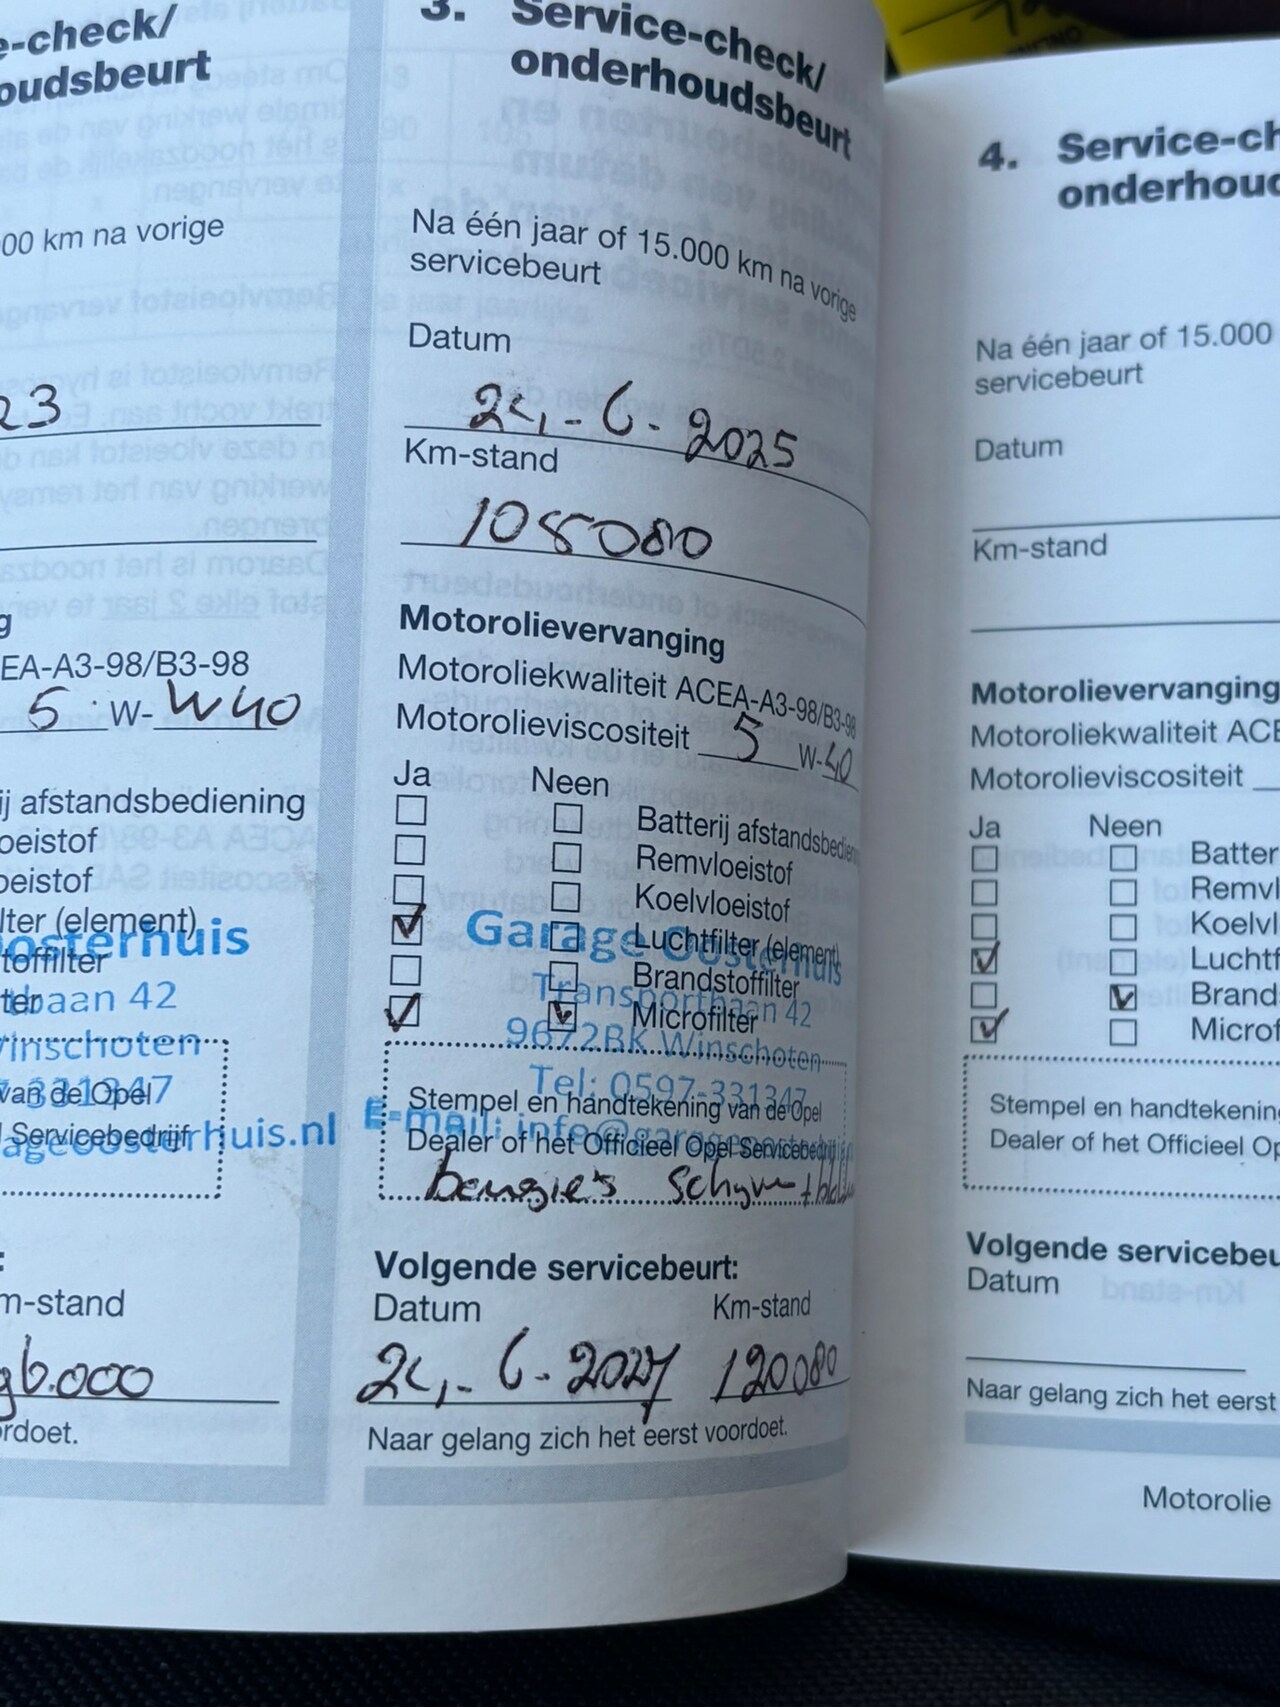 e-check/
oudsbeurt
00 km na vorige
23
EA-A3-98/B3-98
5 W- W40
ij afstandsbediening
oeistof
oeistof
lter (element)
oosterhuis
toffilter
tbaan 42
ter
Winschoten
331347
van de Opel
Servicebedrijf
ageoosterhuis.nl
m-stand
96.000
rdoet.
3. Service-check/
onderhoudsbeurt
Na één jaar of 15.000 km na vorige
servicebeurt
Datum
24-6-2025
Km-stand
105080
Motorolievervanging
Motoroliekwaliteit ACEA-A3-98/B3-98
Motorolieviscositeit 5 W-40
Ja Neen
Batterij afstandsbedien
Remvloeistof
Koelvloeistof
Luchtfilter (element)
Garage Oosterhuis
Brandstoffilter
Transportbaan 42
Microfilter
9672BK Winschoten
Tel: 0597-331347
Stempel en handtekening van de Opel
E-mail: info@garageoosterhuis
Dealer of het Officieel Opel Servicebedrijf
Volgende servicebeurt:
Datum Km-stand
24-6-2027 120080
Naar gelang zich het eerst voordoet.
4. Service-ch
onderhoud
Na één jaar of 15.000
servicebeurt
Datum
Km-stand
Motorolievervanging
Motoroliekwaliteit ACE
Motorolieviscositeit
Ja Neen
Batter
Remvl
Koelvl
Luchtf
Brands
Microf
Stempel en handtekening
Dealer of het Officieel Op
Volgende servicebeu
Datum
Naar gelang zich het eerst
Motorolie